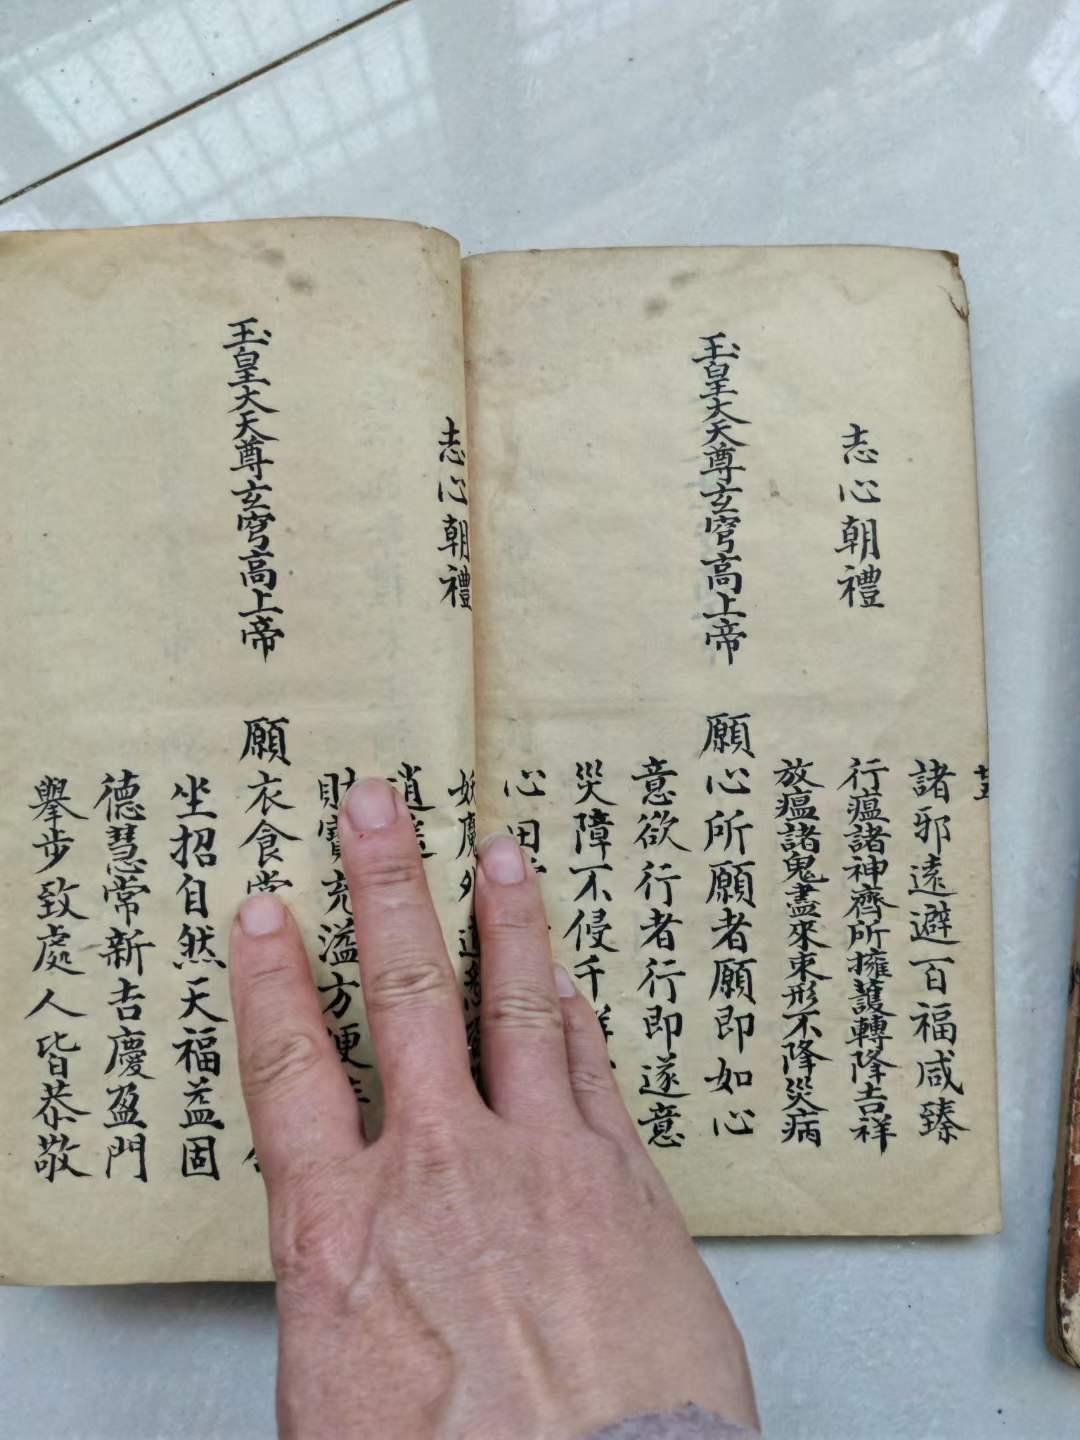 諸邪遠避百福咸臻
行瘟諸神齊所擁護轉降吉祥
放瘟諸鬼盡來束形不降災病
志心朝禮
玉皇大天尊玄穹高上帝
願心所願者願即如心
意欲行者行即遂意
災障不侵千祥
心田
妖魔外道
逍遙
志心朝禮
財寶充溢方便
玉皇大天尊玄穹高上帝
願衣食常
坐招自然天福益固
德慧常新吉慶盈門
舉步致處人皆恭敬